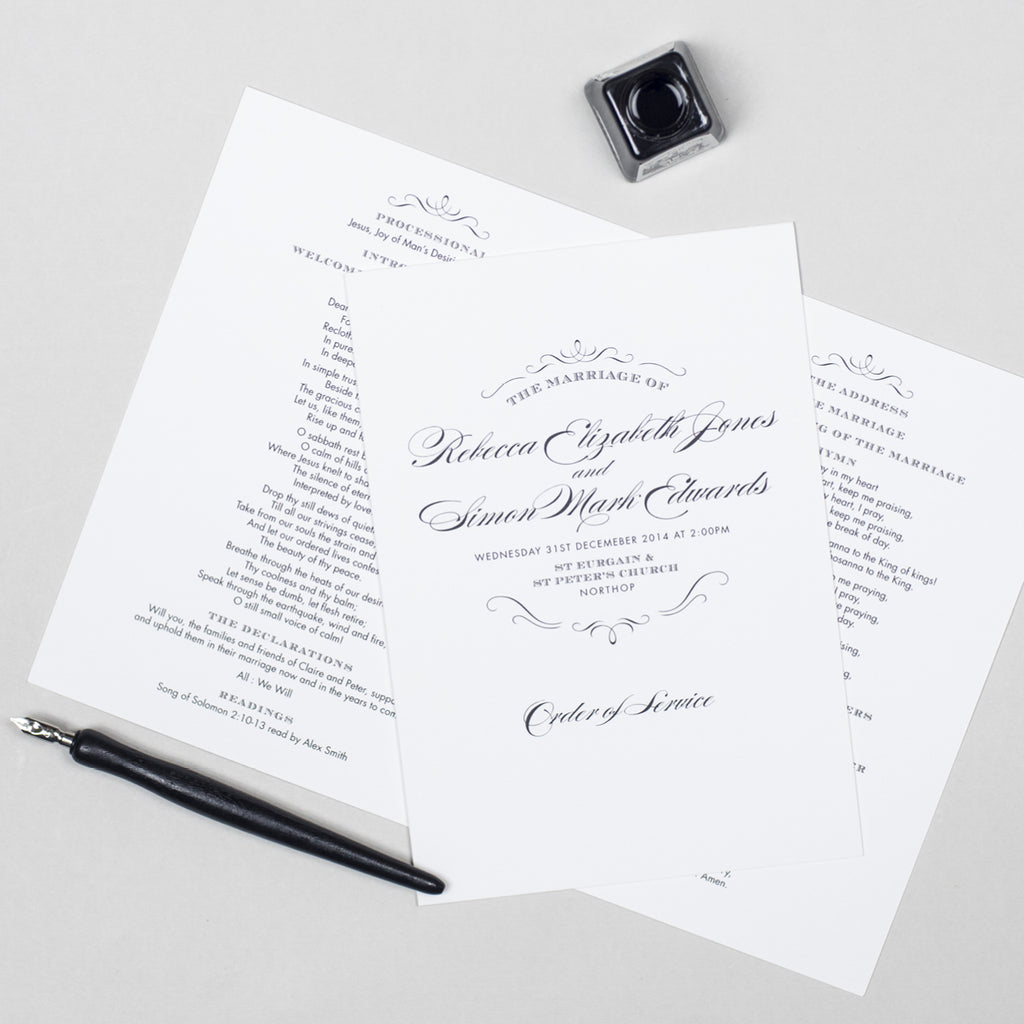 PROCESSIONAL
Jesus, Joy of Man's Desiri
INTRO
WELCOM
Dear
Fo
Recloth
In pure
In deep
In simple trus
Beside t
The gracious c
Let us, like them,
Rise up and f
O sabbath rest b
O calm of hills a
Where Jesus knelt to sha
The silence of etern
Interpreted by love,
Drop thy still dews of quiet
Till all our strivings cease,
Take from our souls the strain and
And let our ordered lives confes
The beauty of thy peace.
Breathe through the heats of our desir
Thy coolness and thy balm;
Let sense be dumb, let flesh retire;
Speak through the earthquake, wind and fire,
O still small voice of calm!
THE DECLARATIONS
Will you, the families and friends of Claire and Peter, suppo
and uphold them in their marriage now and in the years to com
All : We Will
READINGS
Song of Solomon 2:10-13 read by Alex Smith
THE MARRIAGE OF
Rebecca Elizabeth Jones
and
Simon Mark Edwards
WEDNESDAY 31ST DECEMEBER 2014 AT 2:00PM
ST EURGAIN &
ST PETER'S CHURCH
NORTHOP
Order of Service
HE ADDRESS
E MARRIAGE
G OF THE MARRIAGE
HYMN
y in my heart
art, keep me praising,
heart, I pray,
keep me praising,
break of day.
anna to the King of kings!
osanna to the King.
me praising,
I pray,
e praising,
day.
ising,
ising,
ERS
ER
y,
Amen.